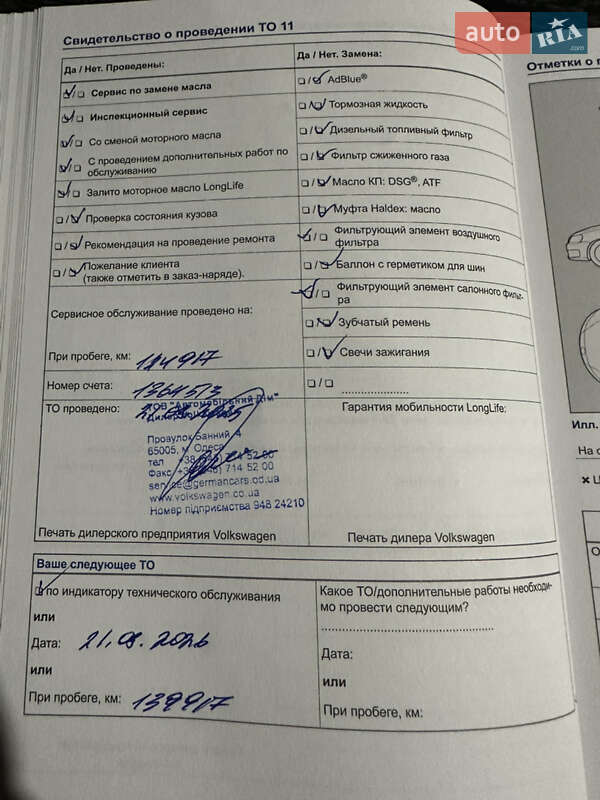 auto RIA.com
Свидетельство о проведении ТО 11
Отметки о п
Да / Нет. Проведены:
Да / Нет. Замена:
Сервис по замене масла
Инспекционный сервис
Со сменой моторного масла
С проведением дополнительных работ по
обслуживанию
Залито моторное масло LongLife
Проверка состояния кузова
Рекомендация на проведение ремонта
Пожелание клиента
(также отметить в заказ-наряде).
AdBlue®
Тормозная жидкость
Дизельный топливный фильтр
Фильтр сжиженого газа
Масло КП: DSG®, ATF
Муфта Haldex: масло
Фильтрующий элемент воздушного
фильтра
Баллон с герметиком для шин
Фильтрующий элемент салонного фильт-
ра
Зубчатый ремень
Свечи зажигания
Сервисное обслуживание проведено на:
При пробеге, км: 124917
Номер счета: 1364513
ТО проведено:
Гарантия мобильности LongLife:
ТОВ "Автомобільний Дім"
Провулок Банний, 4
65005, м. Одеса
тел
Факс 714 52 00
service@germancars.od.ua
www.volkswagen.co.ua
Номер підприємства 948 24210
Печать дилерского предприятия Volkswagen
Печать дилера Volkswagen
Илл.
На с
Ваше следующее ТО
по индикатору технического обслуживания
или
Дата: 21.08.2026
или
При пробеге, км: 139917
Какое ТО/дополнительные работы необходи-
мо провести следующим?
Дата:
или
При пробеге, км: